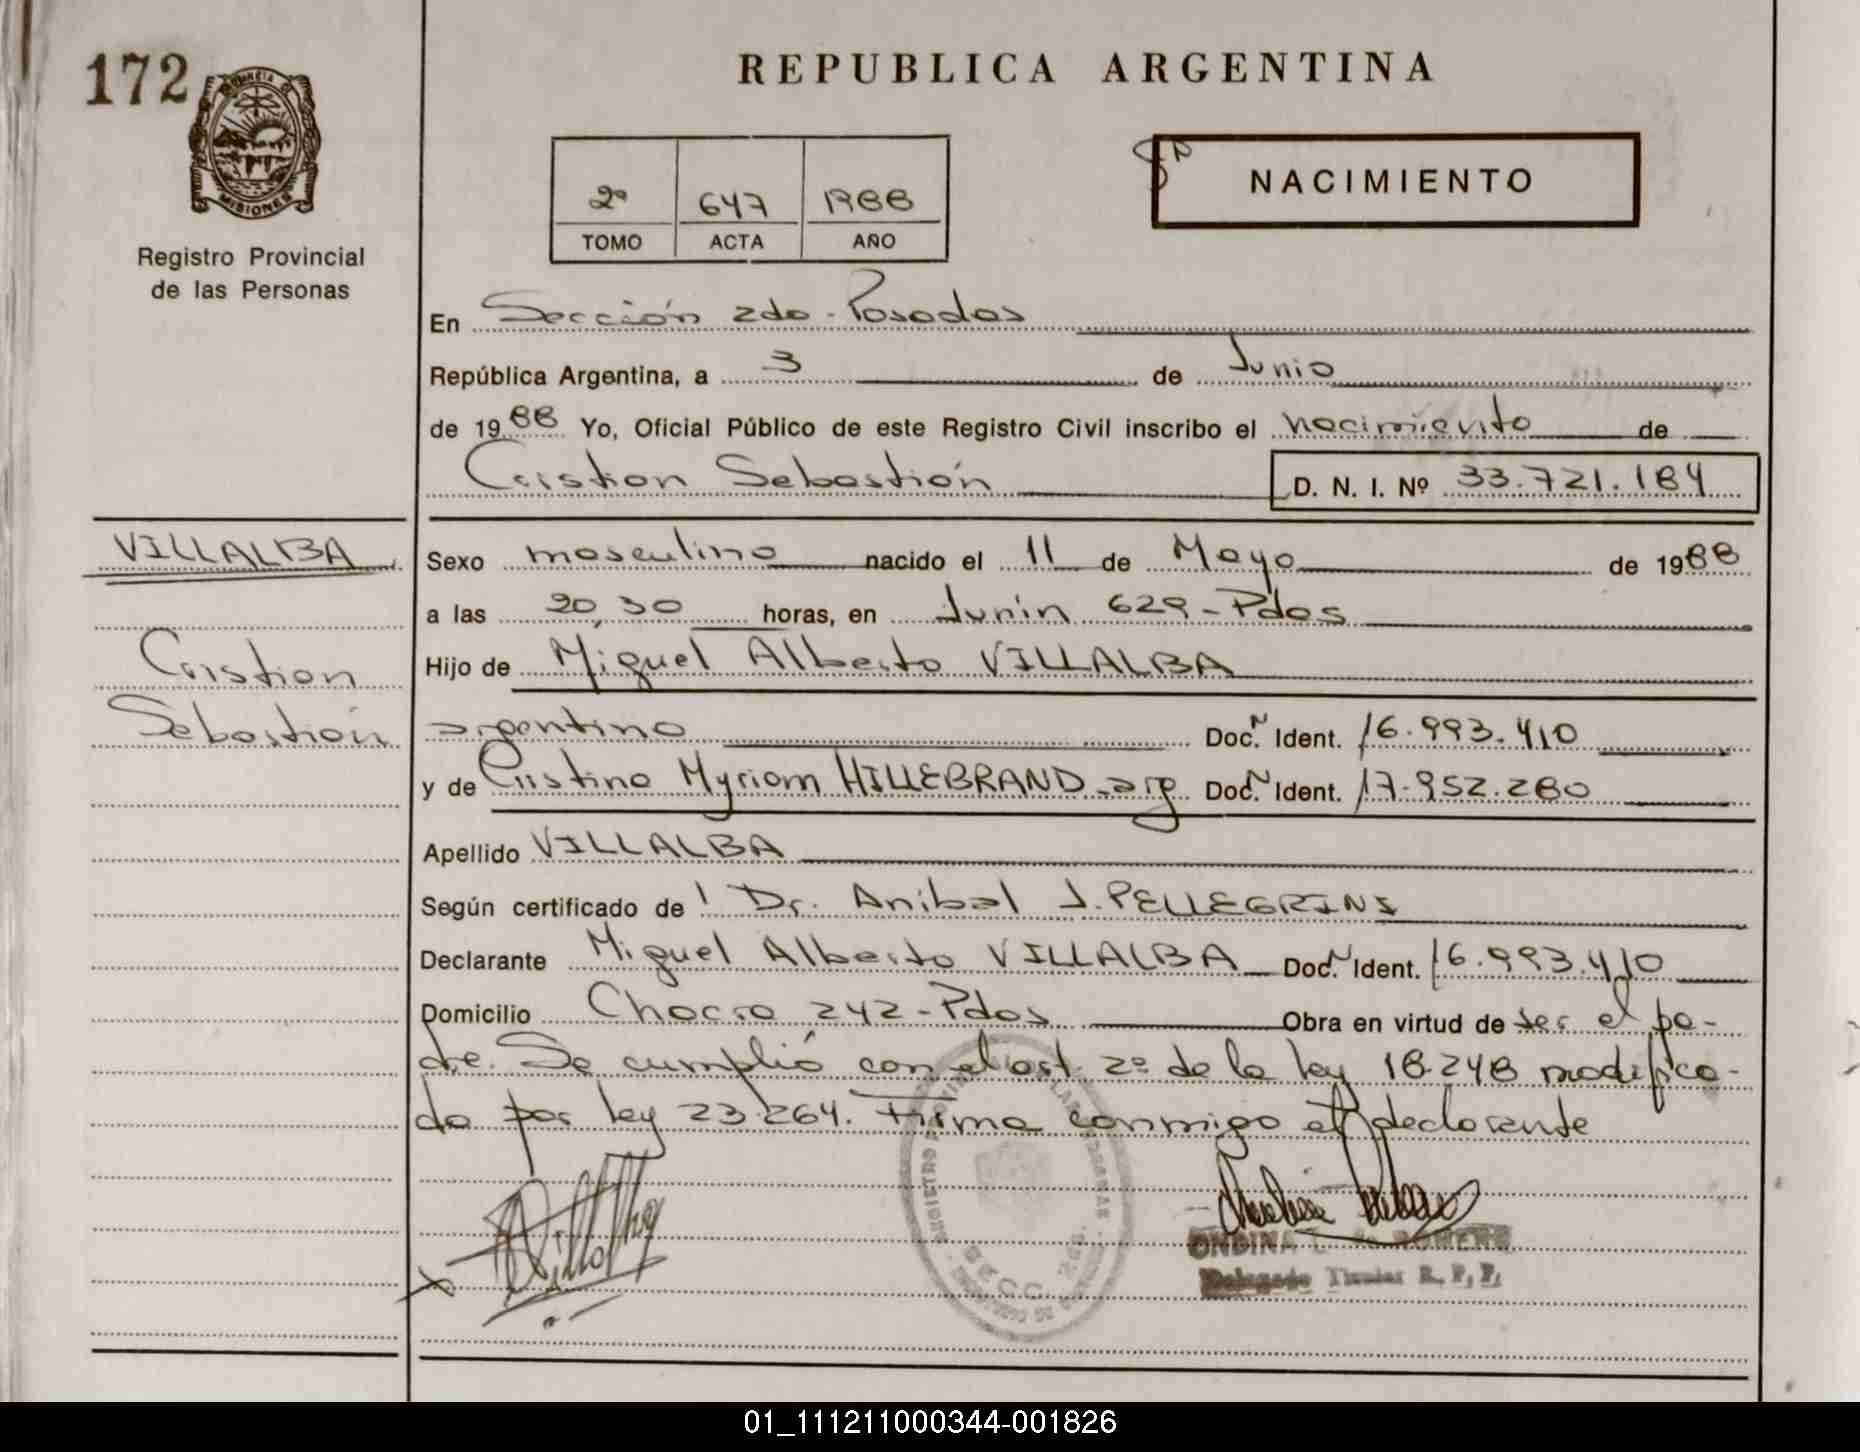 172
REPUBLICA ARGENTINA
PROVINCIA DE
MISIONES
Registro Provincial
de las Personas
2º 647 1988
TOMO ACTA AÑO
NACIMIENTO
En Sección 2da - Posadas
República Argentina, a 3 de Junio
de 1988 Yo, Oficial Público de este Registro Civil inscribo el nacimiento de
Cristian Sebastián D. N. I. Nº 33.721.184
VILLALBA
Cristian
Sebastián
Sexo masculino nacido el 11 de Mayo de 1988
a las 20,30 horas, en Junín 629 - Pdas
Hijo de Miguel Alberto VILLALBA
argentino Doc. Ident. 16.993.410
y de Cristina Myriam HILLEBRAND - arg Doc. Ident. 17.952.280
Apellido VILLALBA
Según certificado de l Dr. Anibal J. PELLEGRINI
Declarante Miguel Alberto VILLALBA Doc. Ident. 16.993.410
Domicilio Chacra 242 - Pdas Obra en virtud de ser el pa-
dre. Se cumplió con el art. 2º de la ley 18.248 modifica-
da por ley 23.264. Firma conmigo el declarante
Villalba
ONDINA L. de ROMERO
Delegado Titular R. P. P.
SECC. 2da.
01_111211000344-001826